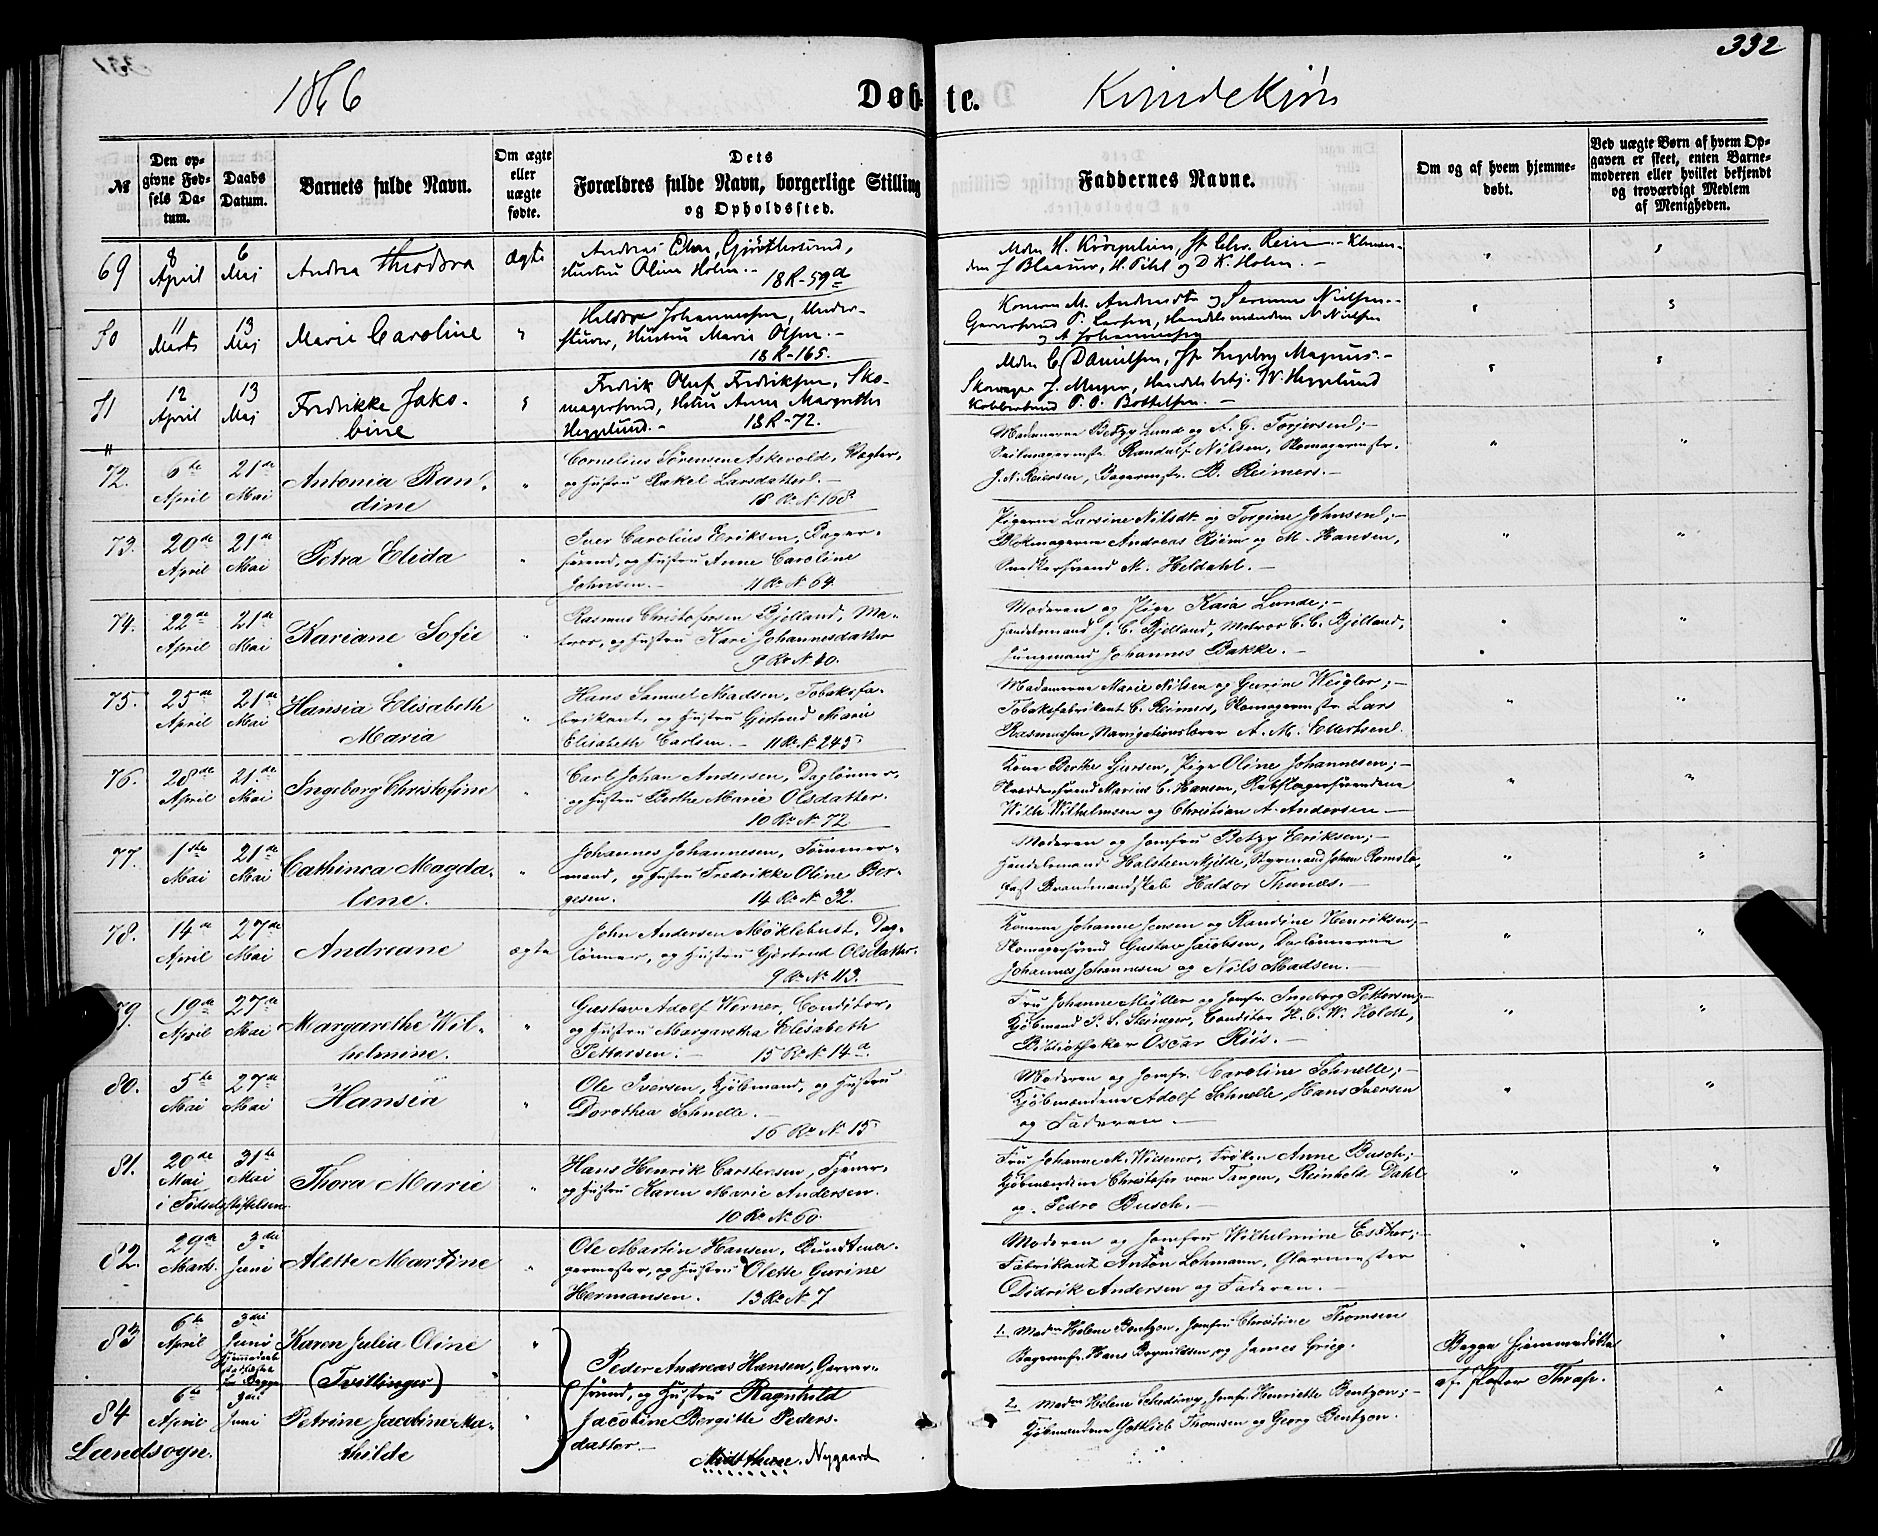 332
1866
Døbte.
Kvindekjøn
№
Den opgivne Fødsels Datum.
Daabs Datum.
Barnets fulde Navn.
Om ægte eller uægte fødte.
Dets Forældres fulde Navn, borgerlige Stilling og Opholdssted.
Faddernes Navne.
Om og af hvem hjemmedøbt.
Ved uægte Børn af hvem Opgaven er skeet, enten Barnemoderen eller hvilket bekjendt og troværdigt Medlem af Menigheden.
69
8 April
6 Maj
Andrea Theodora
Ægte
Hustru Oline Holm.
18 R - 59a
70
11 Marts
13 Maj
Marie Caroline
"
Johannessen, Under-
Hustru Marie Olsen.
18 R - 165.
71
12 April
13 Maj
Fredrikke Jako-
bine
Fredrik Oluf Fredriksen, Sko-
magersvend, Hustru Anna Margrethe
Hegglund. - 18 R - 72.
72.
6te April
21de Mai
Antonia Ran-
dine
"
Cornelius Sørensen Askevold, Vægter,
og Hustru Rakel Larsdatter. -
18 R. N. 108
Madamerne Betzy Lund og A. G. Torjersen; -
Seilmagermstr. Randulf Nilsen, Skomagermstr.
J. N. Reiersen, Bagermstr. B. Reimers. -
73.
20de April
21de Mai
Petra Elida
"
Iver Carolius Eriksen, Bager-
svend, og Hustru Anne Caroline
Johnsen. - 11 R. N. 64.
Pigerne Larsine Nilsdtr. og Torgine Johnsen; -
Blokmagerne Andreas Riim og M. Hansen,
Snedkersvend M. Heldahl. -
74.
22de April
21de Mai
Kariane Sofie
"
Rasmus Christofersen Bjelland, Ma-
tros, og Hustru Kari Johannesdatter
9 R. N. 40.
Moderen og Pige Kaia Lunde; -
Handelsmand J. C. Bjelland, Matros C. C. Bjelland,
Ungmand Johannes Bakke. -
75.
25de April
21de Mai
Hansia Elisabeth
Maria
"
Hans Samuel Madsen, Tobaksfa-
brikant, og Hustru Gjertrud Marie
Elisabeth Carlsen. - 11 R. N. 245
Madamerne Marie Nilsen og Gurine Weigler; -
Tobaksfabrikant C. Reimers, Skomagermstr. Lars
Rasmussen, Navigationslærer A. M. Evertsen.
76.
28de April
21de Mai
Ingeborg Christofine
"
Carl Johan Andersen, Daglønner,
og Hustru Berthe Marie Olsdatter.
10 R. N. 72
Kone Berthe Sjursen, Pige Oline Johannesen; -
Skræddersvend Marius C. Hansen, Rebslagersvendene
Wilh. Wilhelmsen og Christian A. Andersen -
77.
1ste Mai
21de Mai
Cathinca Magda-
lene.
"
Johannes Johannesen, Tømmer-
mand, og Hustru Fredrikke Oline Ber-
gesen. 14 R. N. 32.
Moderen og Jomfru Betzy Eriksen; -
Handelsmand Halsteen Mjelde, Styrmand Johan Romslo,
fast Brandmandskab Haldor Thunæs. -
78.
14de April
27de Mai
Andreane
ægte
John Andersen Møklebust, Dag-
lønner, og Hustru Gjertrud Olsdatter.
9 R. N. 113.
Konerne Johanne Jensen og Randine Henriksen, -
Skomagersvend Gustav Jacobsen, Daglønnerne
Johannes Johannesen og Nils Madsen. -
79.
19de April
27de Mai
Margarethe Wil-
helmine.
"
Gustav Adolf Werner, Conditor,
og Hustru Margaretha Elisabeth
Pettersen. - 15 R. N. 14a.
Fru Johanne Müller og Jomfr. Ingeborg Pettersen; -
Kjøbmand P. S. Steineger, Conditor H. C. W. Holdt,
Bibliothekar Oscar Riis. -
80.
5te Mai
27de Mai
Hansia
"
Ole Iversen, Kjøbmand, og Hustru
Dorothea Schnelle. -
16 R. N. 15
Moderen og Jomfr. Caroline Schnelle; -
Kjøbmændene Adolf Schnelle, Hans Iversen
og Faderen. -
81.
20de Mai
31te Mai
i Fødselsstiftelsen
Thora Marie
"
Hans Henrik Carstensen, Tjener,
og Hustru Karen Marie Andersen.
10 R. N. 60.
Fru Johanne M. Wiesener, Frøken Anne Busch; -
Kjøbmændene Christofer von Tangen, Reinholdt Dahl
og Pedro Busch. -
82.
29de Marts
3die Juni
Alette Martine
"
Ole Martin Hansen, Bundtma-
germester, og Hustru Olette Gurine
Hermansen. 13 R. N. 7
Moderen og Jomfru Wilhelmine Esther; -
Fabrikant Anton Lohmann, Glarmester
Didrik Andersen og Faderen. -
83
6te April
3die Juni
Karen Julia Oline
(Tvillinger)
"
Peder Andreas Hansen, Garver-
svend, og Hustru Ragnhild
Jacobine Bergitte Peders-
datter. -
Midtthune. Nygaard
1. Madm Helene Bentzon, Jomfru Christine Thomsen
Bagermstr. Hans Bognildsen og James Grieg.
Begge hjemmedøbte
af Pastor Thrap.
84
6te April
3die Juni
Petrine Jacobine Ma-
thilde
Landsogn.
2. Madm Helene Scheding, Jomfr. Henriette Bentzon; -
Kjøbmændene Gottlieb Thomsen og Georg Bentzon.